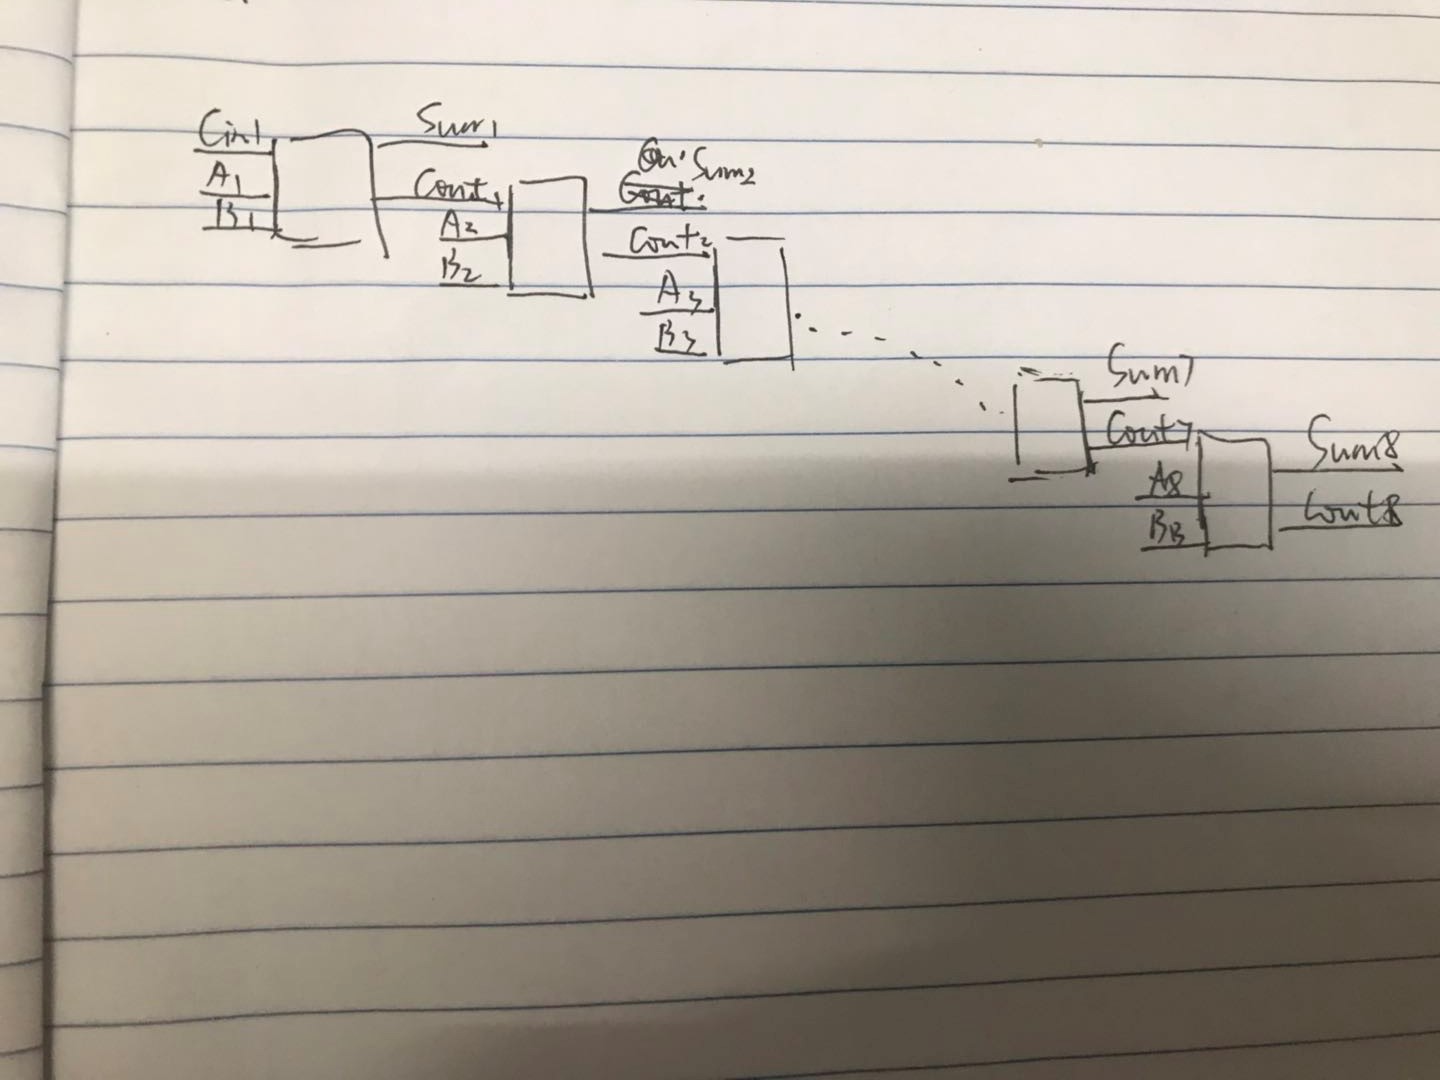 Cin1
A1
B1
Sum1
Cout1
A2
B2
Sum2
Cout2
A3
B3
Sum7
Cout7
A8
B8
Sum8
Cout8